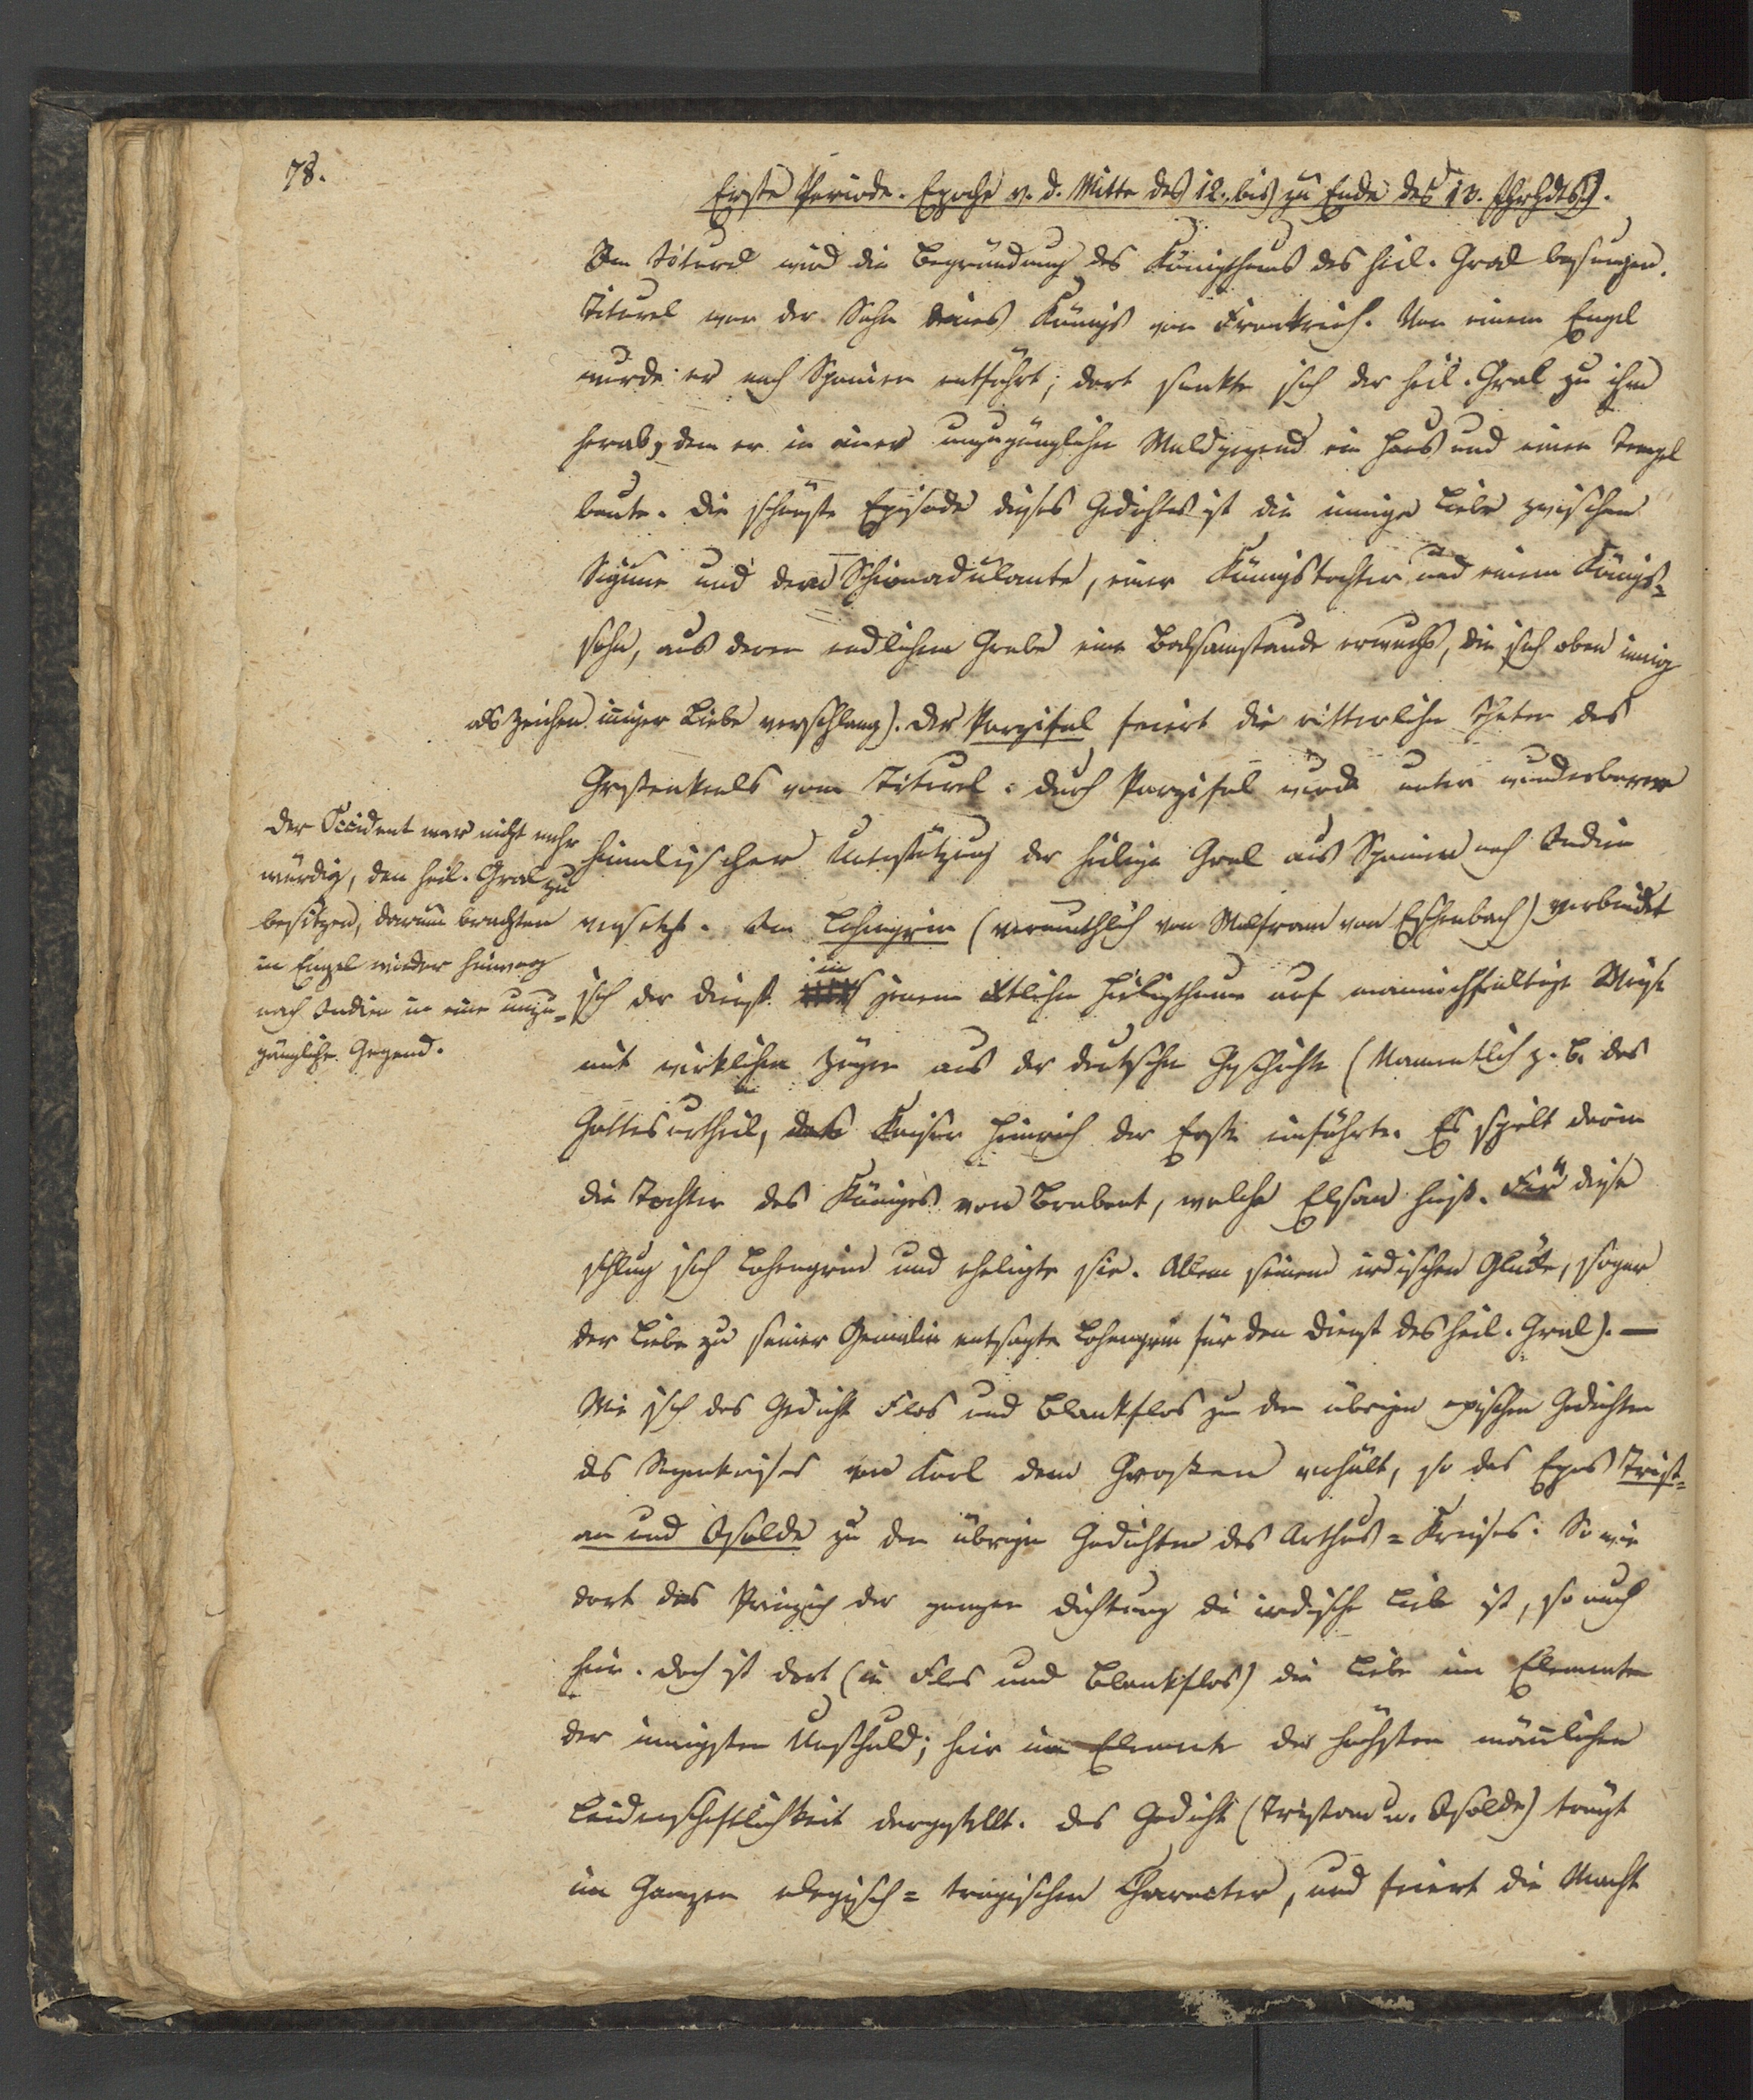 78.
Erste Periode. Epoche v. d. Mitte des 12. bis zu Ende des 13. Jhrhdts.
Im Titurel wird die Begründung des Königthums des heil. Gral besungen.
Titurel war der Sohn eines Königs von Frankreich. Von einem Engel
wurde er nach Spanien entführt; dort senkte sich der heil. Gral zu ihm
herab, dem er in einer unzugänglichen Waldgegend ein Haus und einen Tempel
baute. Die schönste Episode dieses Gedichtes ist die innige Liebe zwischen
Sigune und dem Schionadulante, einer Königstochter und einem Königs=
sohn, aus deren endlichem Grabe eine Balsamstaude erwuchs, die sich oben innig
als Zeichen inniger Liebe verschlang). Der Parzifal feiert die ritterlichen Thaten des
Großenkels vom Titurel. Durch Parzifal wird unter wunderbarer
himmlischer Unterstützung der heilige Gral aus Spanien nach Indien
versetzt. Im Lohengrin (vermuthlich von Wolfram von Eschenbach) verbindet
sich der Dienst in jenem Heiligthume auf mannichfaltige Weise
mit wirklichen Zügen aus der deutschen Geschichte (Namentlich z. B. das
Gottesurtheil, das Kaiser Heinrich der Erste einführte. Es spielt darin
die Tochter des Königes von Brabant, welche Elsan hieß. Für diese
schlug sich Lohengrin und ehligte sie. Allem seinem irdischen Glücke, sogar
der Liebe zu seiner Gemalin entsagte Lohengrin für den Dienst des heil. Gral). —
Wie sich das Gedicht Flos und Blankflos zu den übrigen epischen Gedichten
des Sagenkreises von Karl dem Großen verhält, so das Epos Trist=
an und Isolde zu den übrigen Gedichten des Arthus=Kreises. So wie
dort das Prinzip der ganzen Dichtung die irdische Liebe ist, so auch
hier. Doch ist dort (in Flos und Blankflos) die Liebe im Elemente
der innigsten Unschuld; hier im Elemente der höchsten männlichen
Leidenschaftlichkeit dargestellt. Das Gedicht (Tristan u. Isolde) trägt
im Ganzen elegisch=tragischen Character, und feiert die Macht
Der Occident war nicht mehr
würdig, den heil. Gral zu
besitzen, darum brachten
in Engel wieder hinweg
nach Indien in eine unzu=
gängliche Gegend.